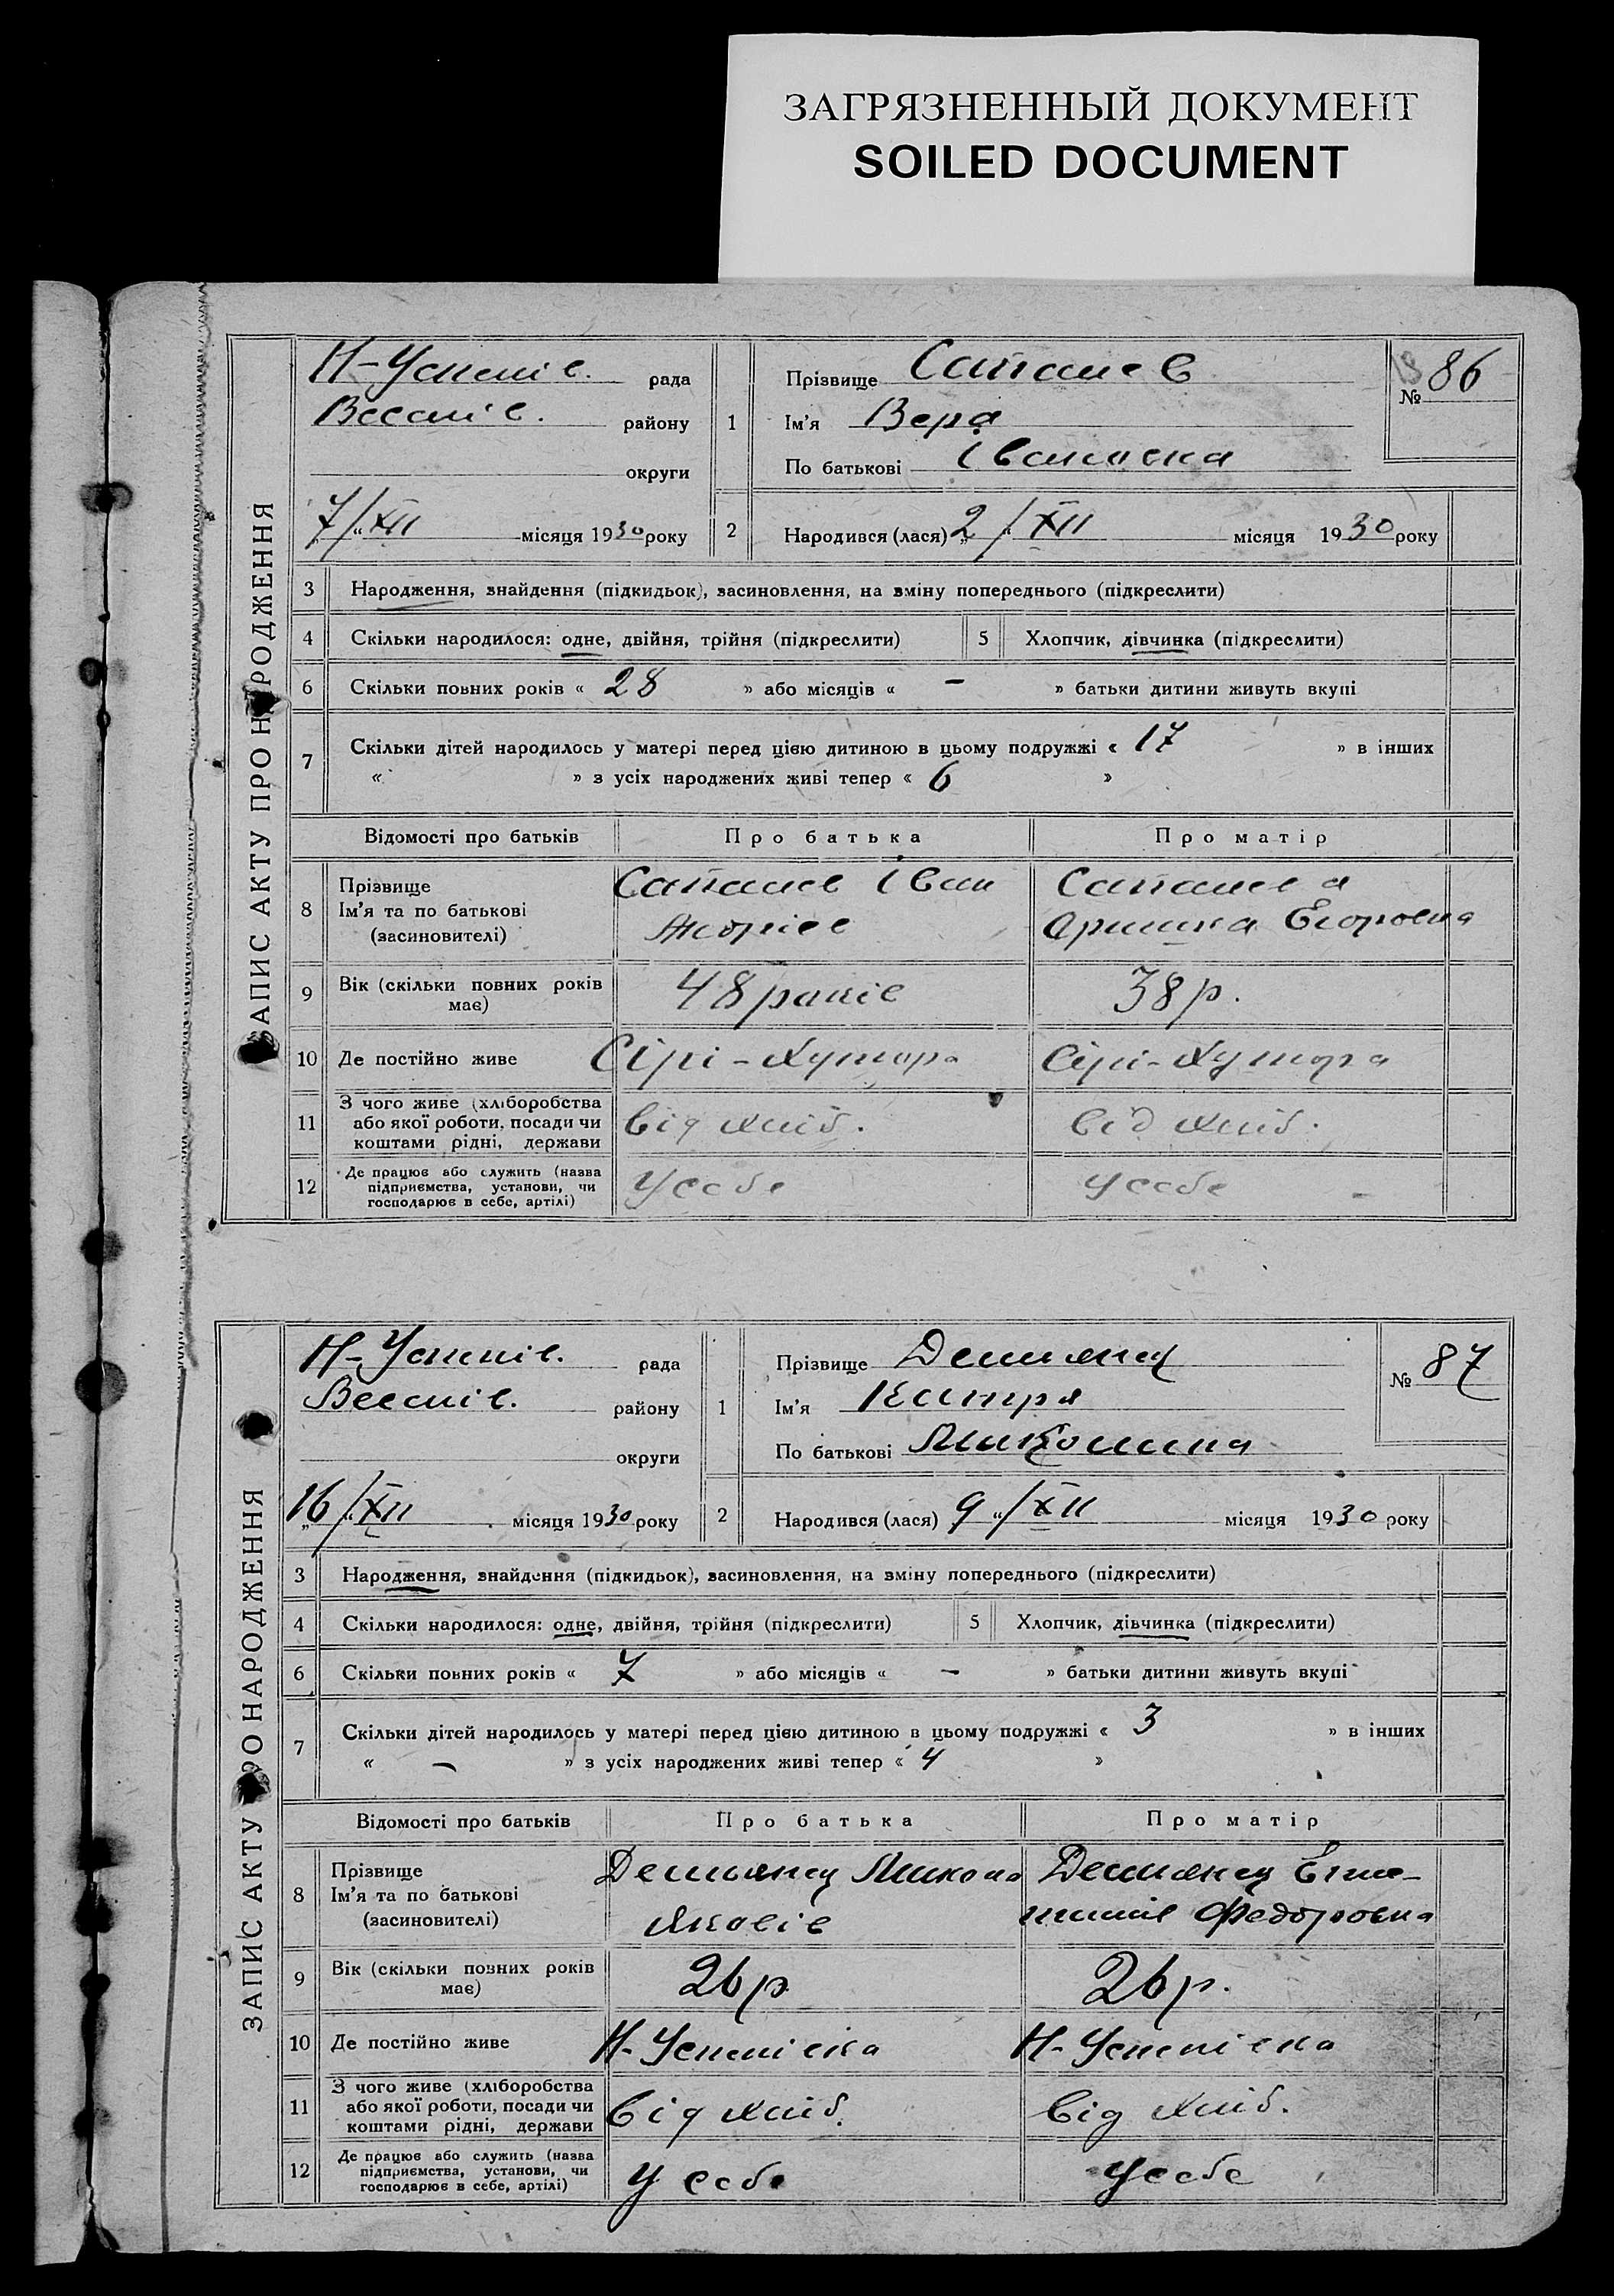 ЗАГРЯЗНЕННЫЙ ДОКУМЕНТ
SOILED DOCUMENT
ЗАПИС АКТУ ПРО НАРОДЖЕННЯ
Н-Успенів. рада
Веселів. району
округи
7/XII місяця 1930 року
№ 86
1 Прізвище
Ім'я Вера
По батькові Івановна
2 Народився (лася) 2/XII місяця 1930 року
3 Народження, знайдення (підкидьок), засиновлення, на зміну попереднього (підкреслити)
4 Скільки народилося: одне, двійня, трійня (підкреслити) 5 Хлопчик, дівчинка (підкреслити)
6 Скільки повних років « 28 » або місяців « – » батьки дитини живуть вкупі
7 Скільки дітей народилось у матері перед цією дитиною в цьому подружжі « 17 » в інших
« » з усіх народжених живі тепер « 6 »
Відомості про батьків Про батька Про матір
8 Прізвище
Ім'я та по батькові
(засиновителі)
Іван
Егоровна
9 Вік (скільки повних років
має)
48 років 38 р.
10 Де постійно живе Сірі-Хутора Сірі-Хутора
11 З чого живе (хліборобства
або якої роботи, посади чи
коштами рідні, держави
від хліб. від хліб.
12 Де працює або служить (назва
підприємства, установи, чи
господарює в себе, артілі)
У себе У себе –
ЗАПИС АКТУ ПРО НАРОДЖЕННЯ
Н-Успенів. рада
Веселів. району
округи
16/XII місяця 1930 року
№ 87
1 Прізвище Демьянец
Ім'я Катря
По батькові Миколівна
2 Народився (лася) 9/XII місяця 1930 року
3 Народження, знайдення (підкидьок), засиновлення, на зміну попереднього (підкреслити)
4 Скільки народилося: одне, двійня, трійня (підкреслити) 5 Хлопчик, дівчинка (підкреслити)
6 Скільки повних років « 7 » або місяців « – » батьки дитини живуть вкупі
7 Скільки дітей народилось у матері перед цією дитиною в цьому подружжі « 3 » в інших
« – » з усіх народжених живі тепер « 4 »
Відомості про батьків Про батька Про матір
8 Прізвище
Ім'я та по батькові
(засиновителі)
Демьянец Микола
Яковів
Демьянец
Федоровна
9 Вік (скільки повних років
має)
26 р 26 р.
10 Де постійно живе Н-Успенівка Н-Успенівка
11 З чого живе (хліборобства
або якої роботи, посади чи
коштами рідні, держави
від хліб. від хліб.
12 Де працює або служить (назва
підприємства, установи, чи
господарює в себе, артілі)
У себе У себе